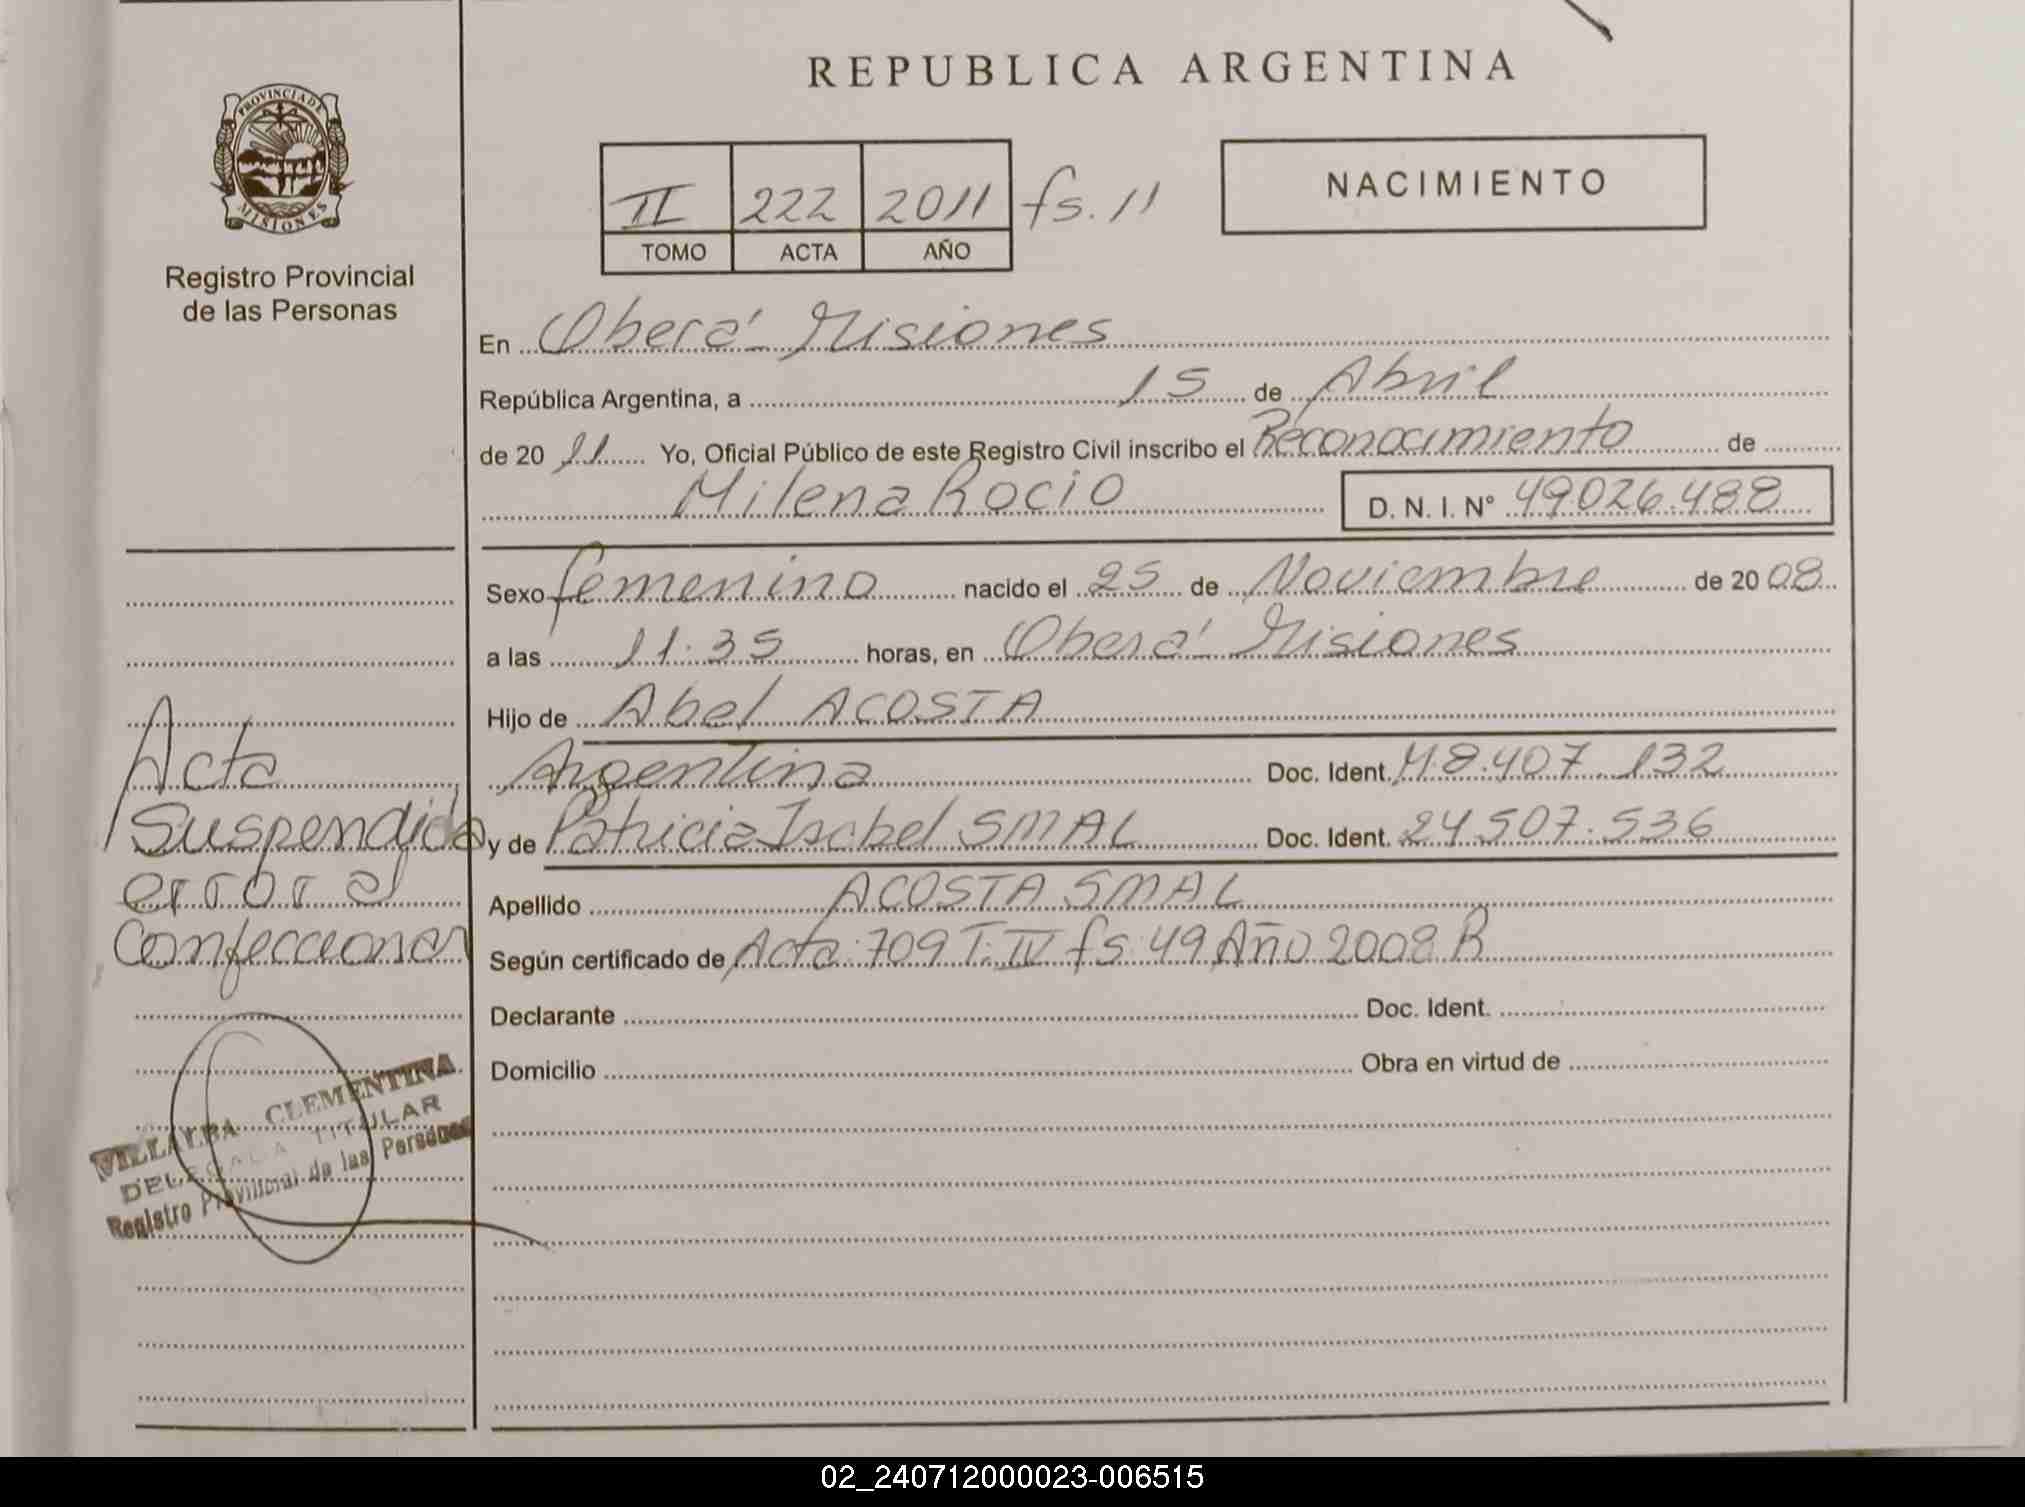 REPUBLICA ARGENTINA
PROVINCIA DE
MISIONES
Registro Provincial
de las Personas
II 222 2011 fs. 11
TOMO ACTA AÑO
NACIMIENTO
En Oberá - Misiones
República Argentina, a 15 de Abril
de 20 11 Yo, Oficial Público de este Registro Civil inscribo el Reconocimiento de
Milena Rocio D. N. I. N° 49.026.488
Sexo femenino nacido el 25 de Noviembre de 20 08
a las 11.35 horas, en Oberá - Misiones
Hijo de Abel ACOSTA
Argentina Doc. Ident. M8.407.132
y de Patricia Isabel SMAL Doc. Ident. 24.507.536
Apellido ACOSTA SMAL
Según certificado de Acta 709 T. IV fs. 49 Año 2008 R
Declarante Doc. Ident.
Domicilio Obra en virtud de
Acta
Suspendida
error al
Confeccionar
VILLALBA CLEMENTINA
DELEGADA TITULAR
Registro Provincial de las Personas
02_240712000023-006515